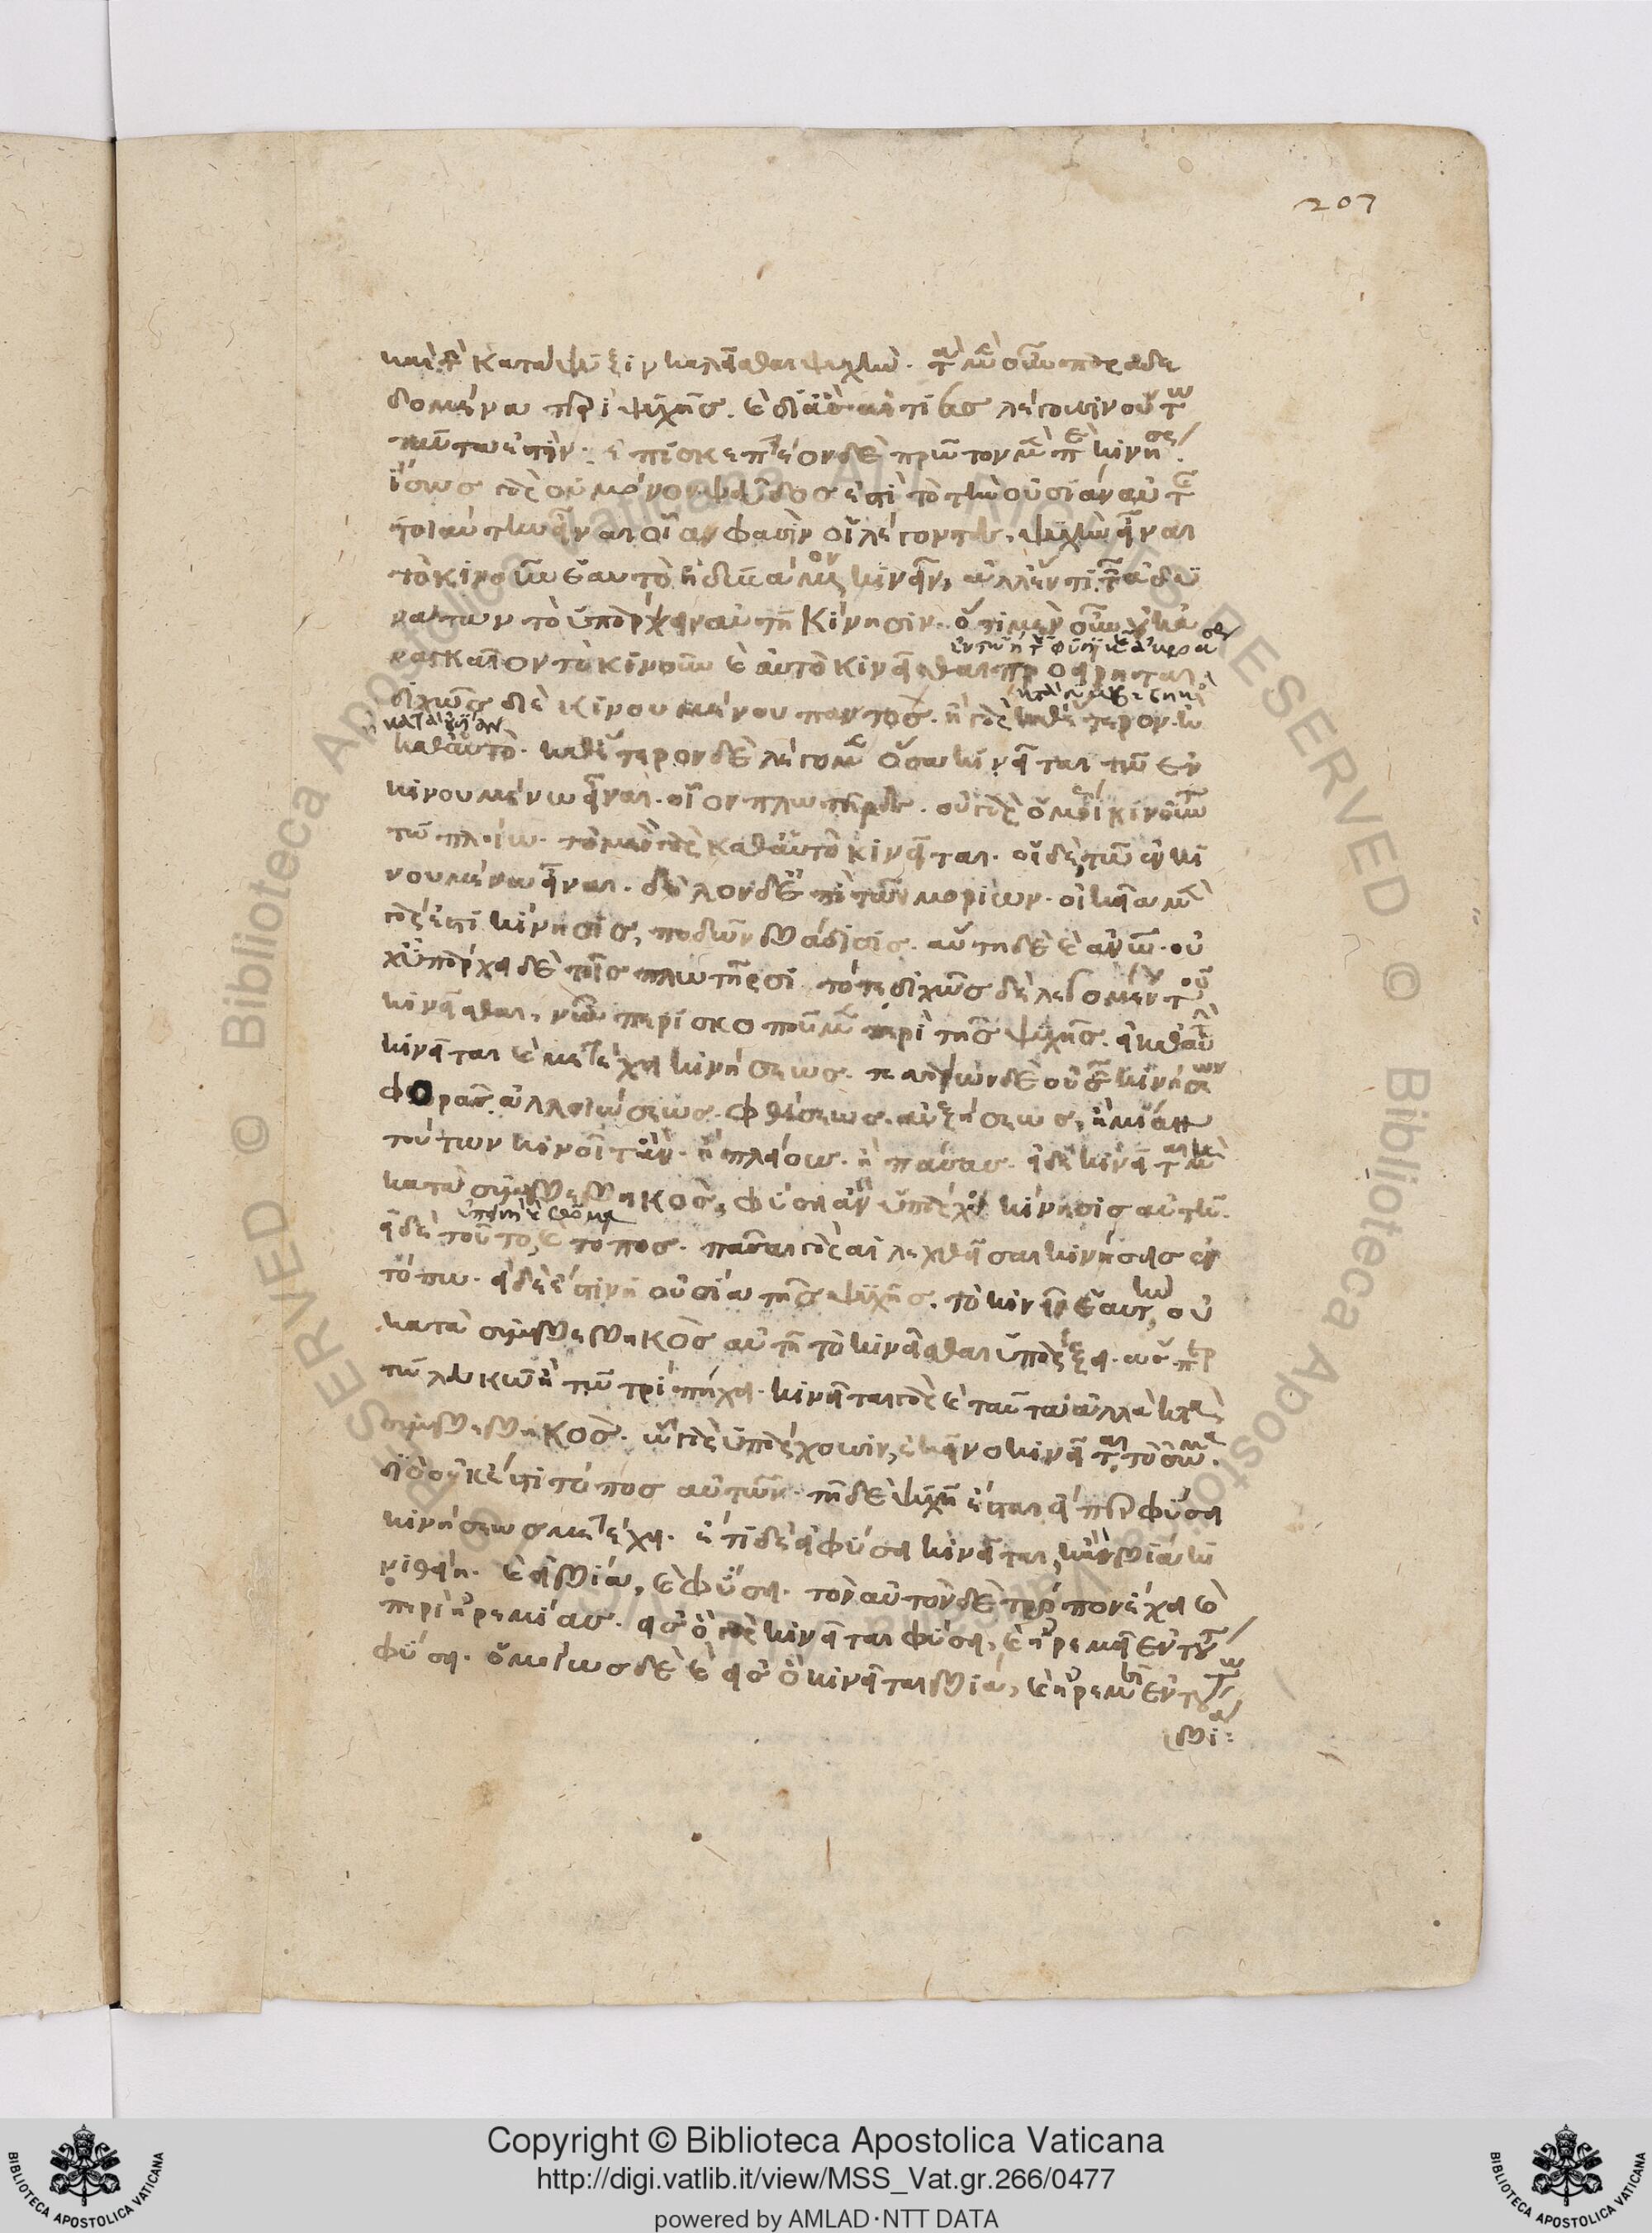 207
καὶ τὴν κατάψυξιν καλεῖσθαι ψυχήν. τὰ μὲν οὖν παραδε
δομένα περὶ ψυχῆς. καὶ δι' ἃς αἰτίας λέγουσιν οὕτω
ταῦτα ἐστίν. ἐπισκεπτέον δὲ πρῶτον μὲν περὶ κινήσεως.
ἴσως γὰρ οὐ μόνον ψεῦδος ἐστὶ τὸ τὴν οὐσίαν αὐτῆς
τοιαύτην εἶναι οἵαν φασὶν οἱ λέγοντες, ψυχὴν εἶναι
τὸ κινοῦν ἑαυτὸ ἢ δυνάμενον κινεῖν, ἀλλ' ἕν τι τῶν ἀδυ
νάτων τὸ ὑπάρχειν αὐτῇ κίνησιν. ὅτι μὲν οὖν οὐκ ἀ
ἐν τῶ η τῆς φυσικῆς ἀκροάσεως
ναγκαῖον τὸ κινοῦν καὶ αὐτὸ κινεῖσθαι προείρηται.
κατὰ συμβεβηκὸς
διχῶς δὲ κινουμένου παντός. ἢ γὰρ καθ' ἕτερον. ἢ
κατὰ οὐσίαν
καθ' αὑτό. καθ' ἕτερον δὲ λέγομεν ὅσα κινεῖται τῶ ἐν
κινουμένω εἶναι. οἷον πλωτῆρες. οὐ γὰρ ὁμοίως κινοῦνται
τῶ πλοίω. τὸ μὲν γὰρ καθ' αὑτὸ κινεῖται. οἱ δὲ, τῶ ἐν κι
νουμένω εἶναι. δῆλον δ' ἐπὶ τῶν μορίων. οἰκεία μὲν
γάρ ἐστι κίνησις, ποδῶν βάδισις. αὕτη δὲ καὶ ἀνθρώπων. οὐ
χ ὑπάρχει δὲ τοῖς πλωτῆρσι τότε διχῶς δὲ λεγομένου τοῦ
κινεῖσθαι, νῦν περισκοποῦμεν περὶ τῆς ψυχῆς. εἰ καθ' αὑτὴν
κινεῖται καὶ μετέχει κινήσεως. τεσσάρων δὲ οὐσῶν κινήσεων
φορᾶς. ἀλλοιώσεως. φθίσεως. αὐξήσεως, ἢ μίαν
τούτων κινοῖτ' ἄν. ἢ πλείους. ἢ πάσας. εἰ δὲ κινεῖται μὴ
κατὰ συμβεβηκός, φύσει ἂν ὑπάρχοι κίνησις αὐτῇ.
εἰ δὲ τοῦτο, καὶ τόπος. πᾶσαι γὰρ αἱ λεχθεῖσαι κινήσεις ἐν
τόπω. εἰ δ' ἐστὶν ἡ οὐσία τῆς ψυχῆς. τὸ κινεῖν ἑαυτήν, οὐ
κατὰ συμβεβηκὸς αὐτῇ τὸ κινεῖσθαι ὑπάρξει. ὥσπερ
τῶ λευκῶ ἢ τῶ τριπήχει. κινεῖται γὰρ καὶ ταῦτα ἀλλὰ κατὰ
συμβεβηκός. ὧ γὰρ ὑπάρχουσιν, ἐκεῖνο κινεῖται, τὸ σῶμα.
διὸ οὐκ ἔστι τόπος αὐτῶν. τῇ δὲ ψυχῇ ἔσται εἴπερ φύσει
κινήσεως μετέχει. ἔτι δ' εἰ φύσει κινεῖται, κἂν βία κι
νηθείη. καὶ εἰ βία, καὶ φύσει. τὸν αὐτὸν δὲ τρόπον ἔχει καὶ
περὶ ἠρεμίας. εἰς ὃ γὰρ κινεῖται φύσει, καὶ ἠρεμεῖ ἐν τούτω
φύσει. ὁμοίως δὲ καὶ εἰς ὃ κινεῖται βία, καὶ ἠρεμεῖ ἐν τούτω
βία:
Copyright © Biblioteca Apostolica Vaticana
http://digi.vatlib.it/view/MSS_Vat.gr.266/0477
powered by AMLAD·NTT DATA